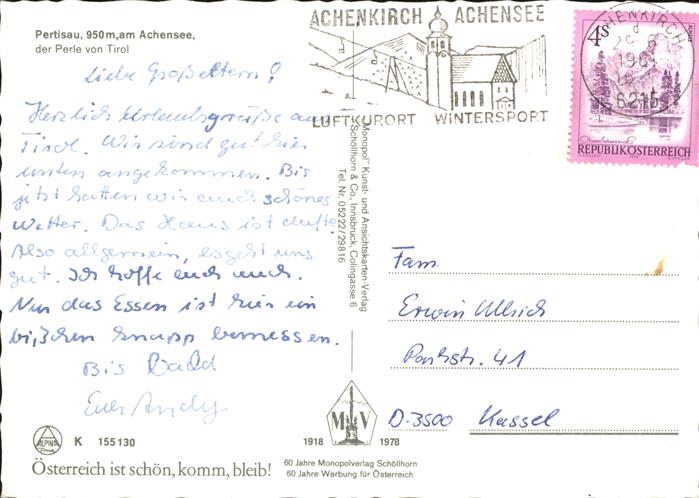 Pertisau, 950 m, am Achensee,
der Perle von Tirol
Liebe Großeltern!
Herzlich Urlaubsgrüße aus
Tirol. Wir sind gut hier
unten angekommen. Bis
jetzt hatten wir auch schönes
Wetter. Das Haus ist dufte.
Also allgemein, es geht uns
gut. Ich hoffe euch auch.
Nur das Essen ist hier ein
bißchen knapp bemessen.
Bis Bald
Euer Andy
ACHENKIRCH ACHENSEE
LUFTKURORT WINTERSPORT
ACHENKIRCH
6215
4S
REPUBLIK ÖSTERREICH
„Monopol" Kunst- und Ansichtskarten-Verlag
Schöllhorn & Co., Innsbruck, Colingasse 6
Tel. Nr. 05222/29816
Fam.
Erwin Ullrich
Parkstr. 41
D-3500 Kassel
ALPINA
K 155 130
1918 MV 1978
Österreich ist schön, komm, bleib!
60 Jahre Monopolverlag Schöllhorn
60 Jahre Werbung für Österreich